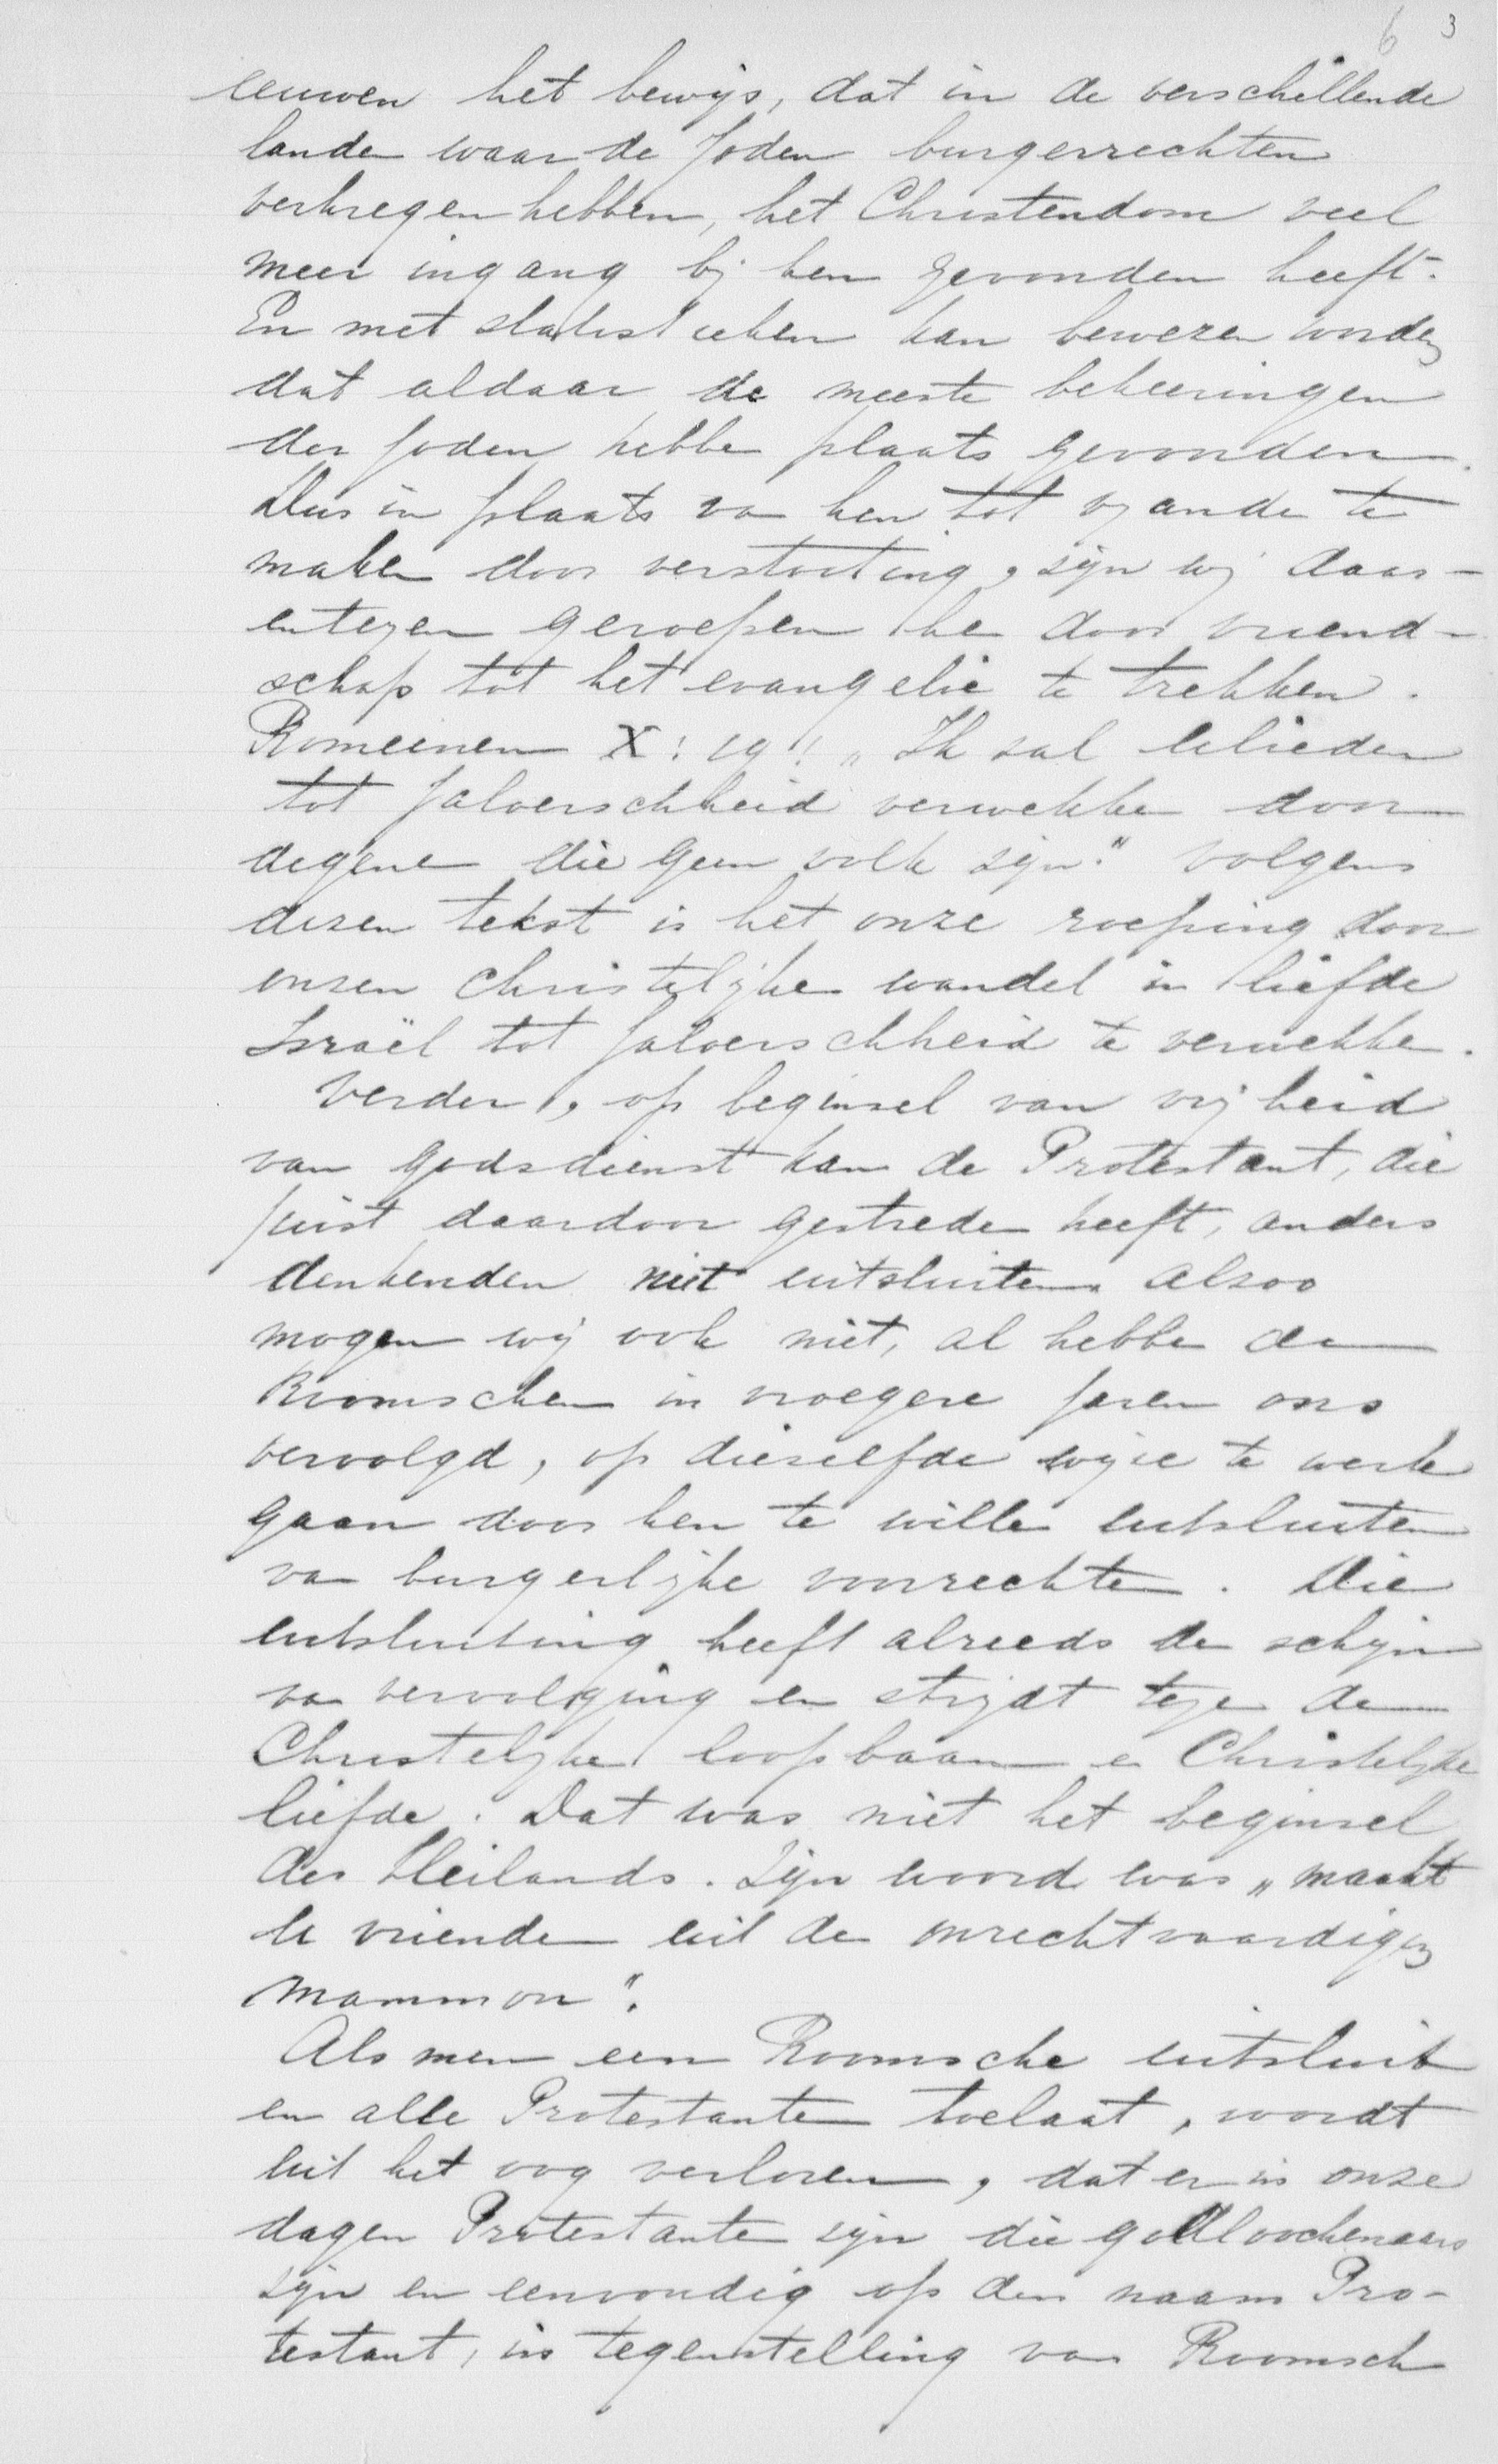 6 3
eeuwen het bewijs, dat in de verschillende
lande waar de Joden burgerrechten
verkregen hebben, het Christendom veel
meer ingang bij hen gevonden heeft.
En met statistieken kan bewezen worden
dat aldaar de meeste bekeeringen
der Joden hebbe plaats gevonden.
Dus in plaats va hen tot vijande te
maken door verstooting, zijn wij daar-
entegen geroepen he door vriend-
schap tot het evangelie te trekken.
Romeinen X: 19: „Ik zal ulieden
tot Jaloerschheid verwekke door
degene die geen volk zijn." Volgens
dezen tekst is het onze roeping door
onzen christelijke wandel in liefde
Israël tot Jaloerschheid te verwekke.
Verder, op beginsel van vrijheid
van godsdienst kan de Protestant, die
juist daardoor gestrede heeft, anders
denkenden niet uitsluiten. Alzoo
mogen wij ook niet, al hebbe de
Roomschen in vroegere jaren ons
vervolgd, op diezelfde wijze te werk
gaan door hen te wille uitsluiten
va burgerlijke voorrechte. Die
uitsluiting heeft alreeds de schijn
va vervolging en strijdt tege de
Christelijke loopbaan e Christelijke
liefde. Dat was niet het beginsel
des Heilands. Zijn woord was „maakt
U vriende uit de onrechtvaardigen
mammon".
Als men een Roomsche uitsluit
en alle Protestante toelaat, wordt
uit het oog verloren, dat er in onze
dagen Protestante zijn die godloochenaars
zijn en eenvoudig op den naam Pro-
testant, in tegenstelling van Roomsch